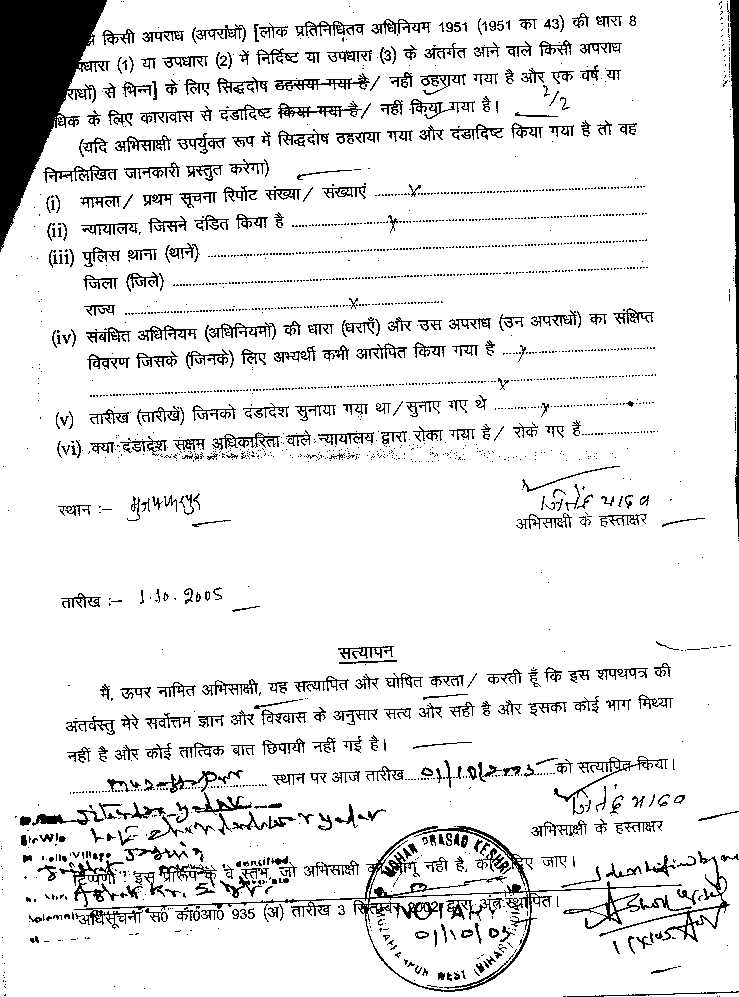 किसी अपराध (अपराधों) [लोक प्रतिनिधितव अधिनियम 1951 (1951 का 43) की धारा 8
उपधारा (1) या उपधारा (2) में निर्दिष्ट या उपधारा (3) के अंतर्गत आने वाले किसी अपराध
राधों) से भिन्न] के लिए सिद्धदोष ठहराया गया है/ नहीं ठहराया गया है और एक वर्ष या
धिक के लिए कारावास से दंडादिष्ट किया गया है/ नहीं किया गया है।
(यदि अभिसाक्षी उपर्युक्त रूप में सिद्धदोष ठहराया गया और दंडादिष्ट किया गया है तो वह
निम्नलिखित जानकारी प्रस्तुत करेगा)
(i) मामला/ प्रथम सूचना रिर्पोट संख्या/ संख्याएं ........ x ........
(ii) न्यायालय, जिसने दंडित किया है ........ x ........
(iii) पुलिस थाना (थाने) ........
जिला (जिले) ........
राज्य ........ x ........
(iv) संबंधित अधिनियम (अधिनियमों) की धारा (धराएँ) और उस अपराध (उन अपराधों) का संक्षिप्त
विवरण जिसके (जिनके) लिए अभ्यर्थी कभी आरोपित किया गया है ........ x ........
........ x ........
(v) तारीख (तारीखें) जिनको दंडादेश सुनाया गया था/ सुनाए गए थे ........ x ........
(vi) क्या दंडादेश सक्षम अधिकारिता वाले न्यायालय द्वारा रोका गया है/ रोके गए हैं........
स्थान :– मुजफ्फरपुर
जितेंद्र यादव
अभिसाक्षी के हस्ताक्षर
तारीख :– 1.10.2005
सत्यापन
मैं, ऊपर नामित अभिसाक्षी, यह सत्यापित और घोषित करता/ करती हूँ कि इस शपथपत्र की
अंतर्वस्तु मेरे सर्वोत्तम ज्ञान और विश्वास के अनुसार सत्य और सही है और इसका कोई भाग मिथ्या
नहीं है और कोई तात्विक बात छिपायी नहीं गई है।
........ स्थान पर आज तारीख 01/10/2005 को सत्यापित किया।
जितेंद्र यादव
अभिसाक्षी के हस्ताक्षर
Jitendra Yadav
Late Chandeshwar Yadav
Village
टिप्पणी : इस प्रारूप के वे स्तंभ, जो अभिसाक्षी को लागू नही है, काट दिए जाए।
Identified by me
अधिसूचना स0 का0आ0 935 (अ) तारीख 3 सितम्बर 2002 द्वारा अंतः स्थापित।
MOHAN PRASAD KESHRI
NOTARY
01/10/05
MUZAFFARPUR WEST (BIHAR)